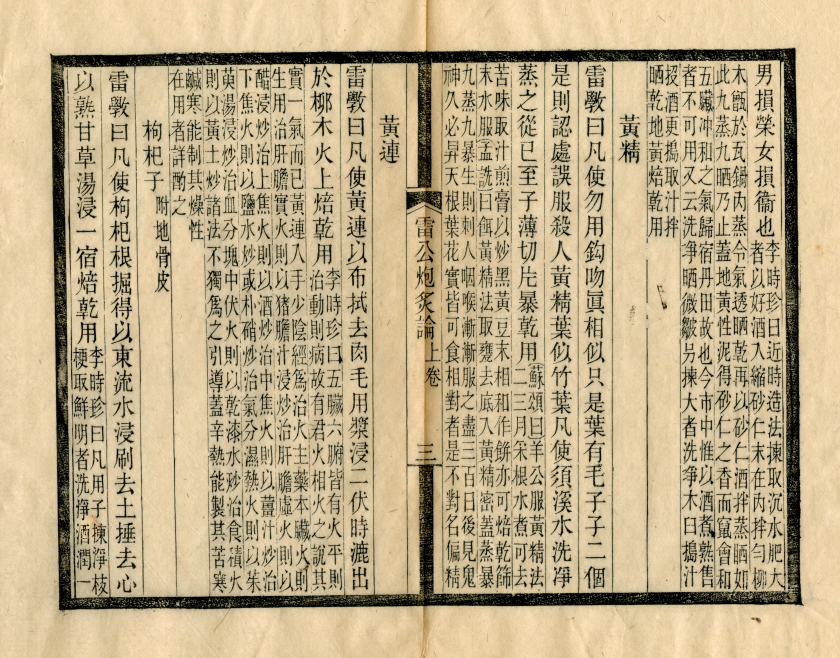 男損榮女損衞也
李時珍曰近時造法揀取沉水肥大
者以好酒入縮砂仁末在內拌勻柳
木甑於瓦鍋內蒸令氣透晒乾再以砂仁酒拌蒸晒如
此九蒸九晒乃止蓋地黃性泥得砂仁之香而竄會和
五臟冲和之氣歸宿丹田故也今市中惟以酒煮熟售
者不可用又云洗淨晒微皺另揀大者洗淨木臼搗汁
投酒更搗取汁拌
晒乾地黃焙乾用
黃精
雷斆曰凡使勿用鈎吻眞相似只是葉有毛子子二個
是則認處誤服殺人黃精葉似竹葉凡使須溪水洗淨
蒸之從巳至子薄切片暴乾用
蘇頌曰羊公服黃精法
二三月采根水煮可去
苦味取汁煎膏以炒黑黃豆末相和作餅亦可焙乾篩
末水服孟詵曰餌黃精法取甕去底入黃精密蓋蒸暴
九蒸九暴生則刺人咽喉漸漸服之盡三百日後見鬼
神久必昇天根葉花實皆可食相對者是不對名偏精
雷公炮炙論
上卷
三
黃連
雷斆曰凡使黃連以布拭去肉毛用漿浸二伏時漉出
於柳木火上焙乾用
李時珍曰五臟六腑皆有火平則
治動則病故有君火相火之說其
實一氣而已黃連入手少陰經爲治火主藥本臟火則
生用治肝膽實火則以猪膽汁浸炒治肝膽虛火則以
醋浸炒治上焦火則以酒炒治中焦火則以薑汁炒治
下焦火則以鹽水炒或朴硝炒治氣分濕熱火則以茱
萸湯浸炒治血分塊中伏火則以乾漆水炒治食積火
則以黃土炒諸法不獨爲之引導蓋辛熱能製其苦寒
鹹寒能制其燥性
在用者詳酌之
枸杞子 附地骨皮
雷斆曰凡使枸杞根掘得以東流水浸刷去土捶去心
以熟甘草湯浸一宿焙乾用
李時珍曰凡用子揀淨枝
梗取鮮明者洗淨酒潤一